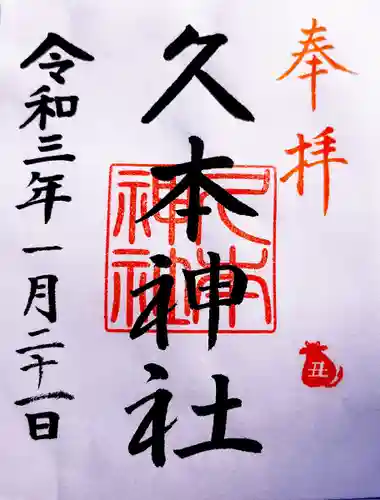 奉拝
丑
久本神社
久本神社
令和三年一月二十一日